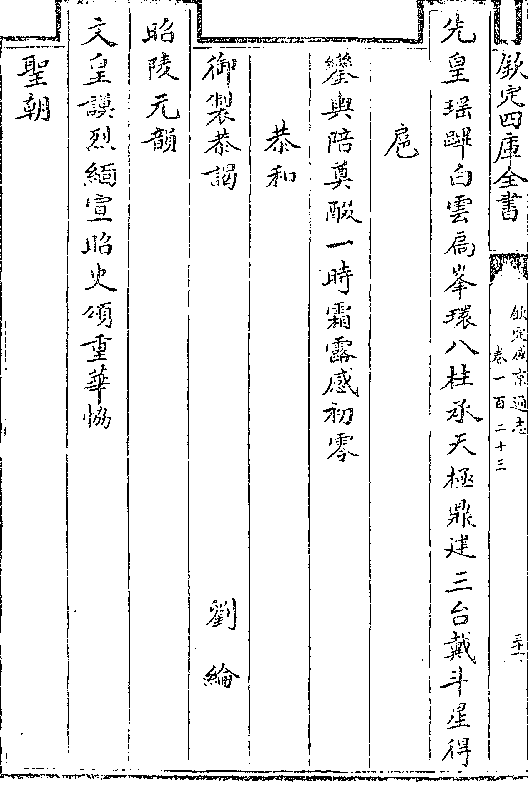 欽定四庫全書
欽定盛京通志
卷一百二十三
三十一
先皇瑶躃白雲扃峯環八柱承天極鼎建三台戴斗星得
扈
鑾輿陪奠酹一時霜露感初零
恭和
御製恭謁
劉綸
昭陵元韻
文皇謨烈緬宣昭史頌重華恊
聖朝